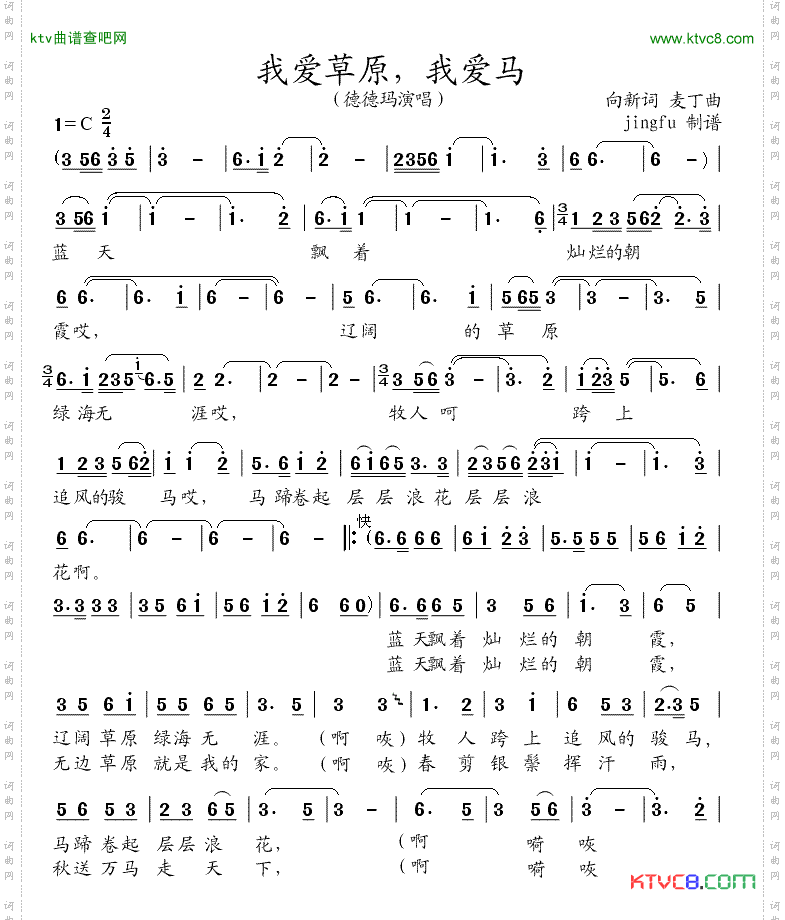 ktv曲谱查吧网
www.ktvc8.com
我爱草原，我爱马
（德德玛演唱）
向新词 麦丁曲
1=C 2/4
jingfu 制谱
(3 56 3 5 | 3 - | 6. i 2 | 2. - | 2356 i | i. 3 | 6 6. | 6 -) |
3 56 i | i - | i. 2 | 6. i 1 | 1 - | 1. 6 | 3/4 1 2 3 5 6 2 2. 3 |
蓝 天 飘 着 灿烂的朝
6 6. | 6. i | 6 - | 6 - | 5 6. | 6. i | 5 65 3 | 3 - | 3. 5 |
霞哎， 辽阔 的 草 原
3/4 6. i 2 3 5 i 6. 5 | 2 2. | 2 - | 2 - | 3/4 3 5 6 3 - | 3. 2 | i 2 3 5 | 5. 6 |
绿海无 涯哎， 牧人 呵 跨 上
1 2 3 5 6 2 | i i | 5. 6 i 2 | 6 i 6 5 3. 3 | 2 3 5 6 2 3 i | i - | i. 3 |
追风的骏 马哎， 马 蹄卷起 层 层 浪 花 层 层 浪
快
6 6. | 6 - | 6 - | 6 - ‖: (6. 6 6 6 | 6 i 2 | 5. 5 5 5 | 5 6 i 2 |
花啊。
3. 3 3 3 | 3 5 6 i | 5 6 i 2 | 6 6 0) | 6. 6 6 5 | 3 5 6 | i. 3 | 6 5 |
蓝 天飘着 灿 烂的 朝 霞，
蓝 天飘着 灿 烂的 朝 霞，
3 5 6 i | 5 5 6 5 | 3. 5 | 3 3 | 1. 2 | 3 i | 6 5 3 | 2. 3 5 |
辽阔 草原 绿海 无 涯。（啊 咴）牧 人 跨 上 追 风的 骏 马，
无边 草原 就是 我的 家。（啊 咴）春 剪 银 鬃 挥 汗 雨，
5 6 5 3 | 5 5 2 | 2 3 6 5 | 3. | 3. | 6. 5 | 3 5 6 | 3 - | 3. 2 |
马蹄 卷起 层层 浪 花， （啊 嗬 咴
秋送 万马 走 天 下， （啊 嗬 咴
KTVC8.COM
词曲网 词曲网 词曲网 词曲网 词曲网
词曲网 词曲网 词曲网 词曲网 词曲网